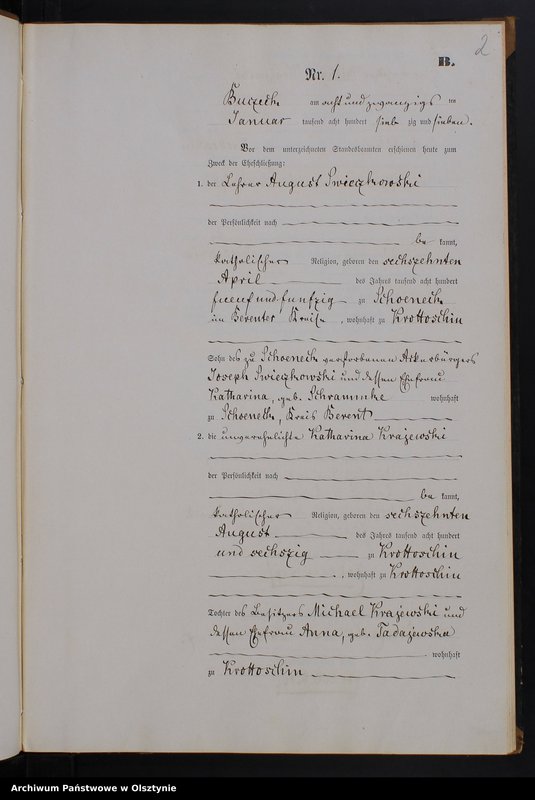 2
B.
Nr. 1.
Buczek am acht und zwanzigs ten
Januar tausend acht hundert sieb zig und sieben.
Vor dem unterzeichneten Standesbeamten erschienen heute zum
Zweck der Eheschließung:
1. der Lehrer August Swieczkowski
der Persönlichkeit nach
be kannt,
katholischer Religion, geboren den sechszehnten
April des Jahres tausend acht hundert
fuenf und funfzig zu Schoeneck
im Berenter Kreise, wohnhaft zu Krottoschin
Sohn des zu Schoeneck verstorbenen Ackerbürgers
Joseph Swieczkowski und dessen Ehefrau
Katharina, geb. Schramnke wohnhaft
zu Schoeneck, Kreis Berent
2. die unverehelichte Katharina Krajewski
der Persönlichkeit nach
be kannt,
katholischer Religion, geboren den sechszehnten
August des Jahres tausend acht hundert
und sechszig zu Krottoschin
, wohnhaft zu Krottoschin
Tochter des Besitzers Michael Krajewski und
dessen Ehefrau Anna, geb. Tadajewska
wohnhaft
zu Krottoschin
Archiwum Państwowe w Olsztynie